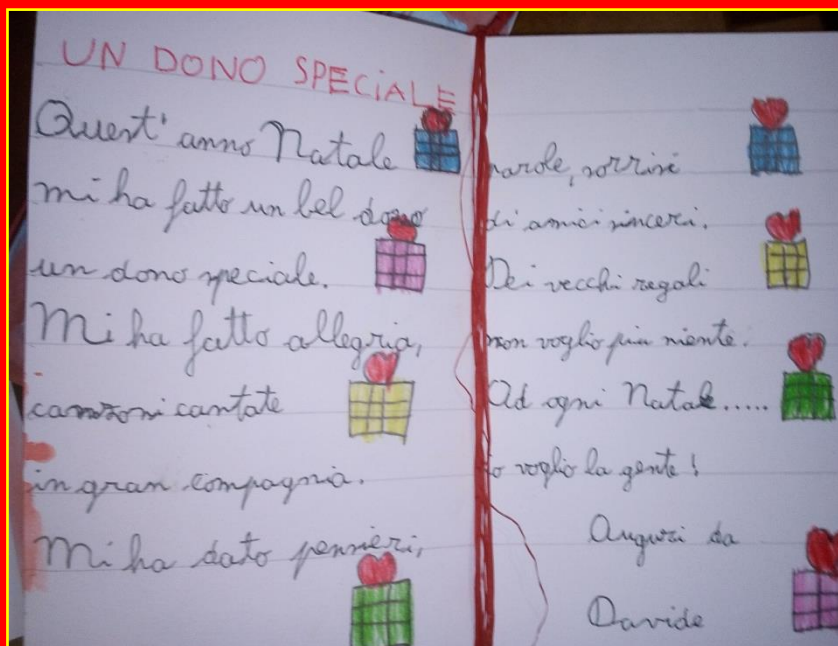 UN DONO SPECIALE
Quest' anno Natale
mi ha fatto un bel dono
un dono speciale.
Mi ha fatto allegria,
canzoni cantate
in gran compagnia.
Mi ha dato pensieri,
parole, sorrisi
di amici sinceri.
Dei vecchi regali
non voglio più niente.
Ad ogni Natale.....
Io voglio la gente!
Auguri da
Davide